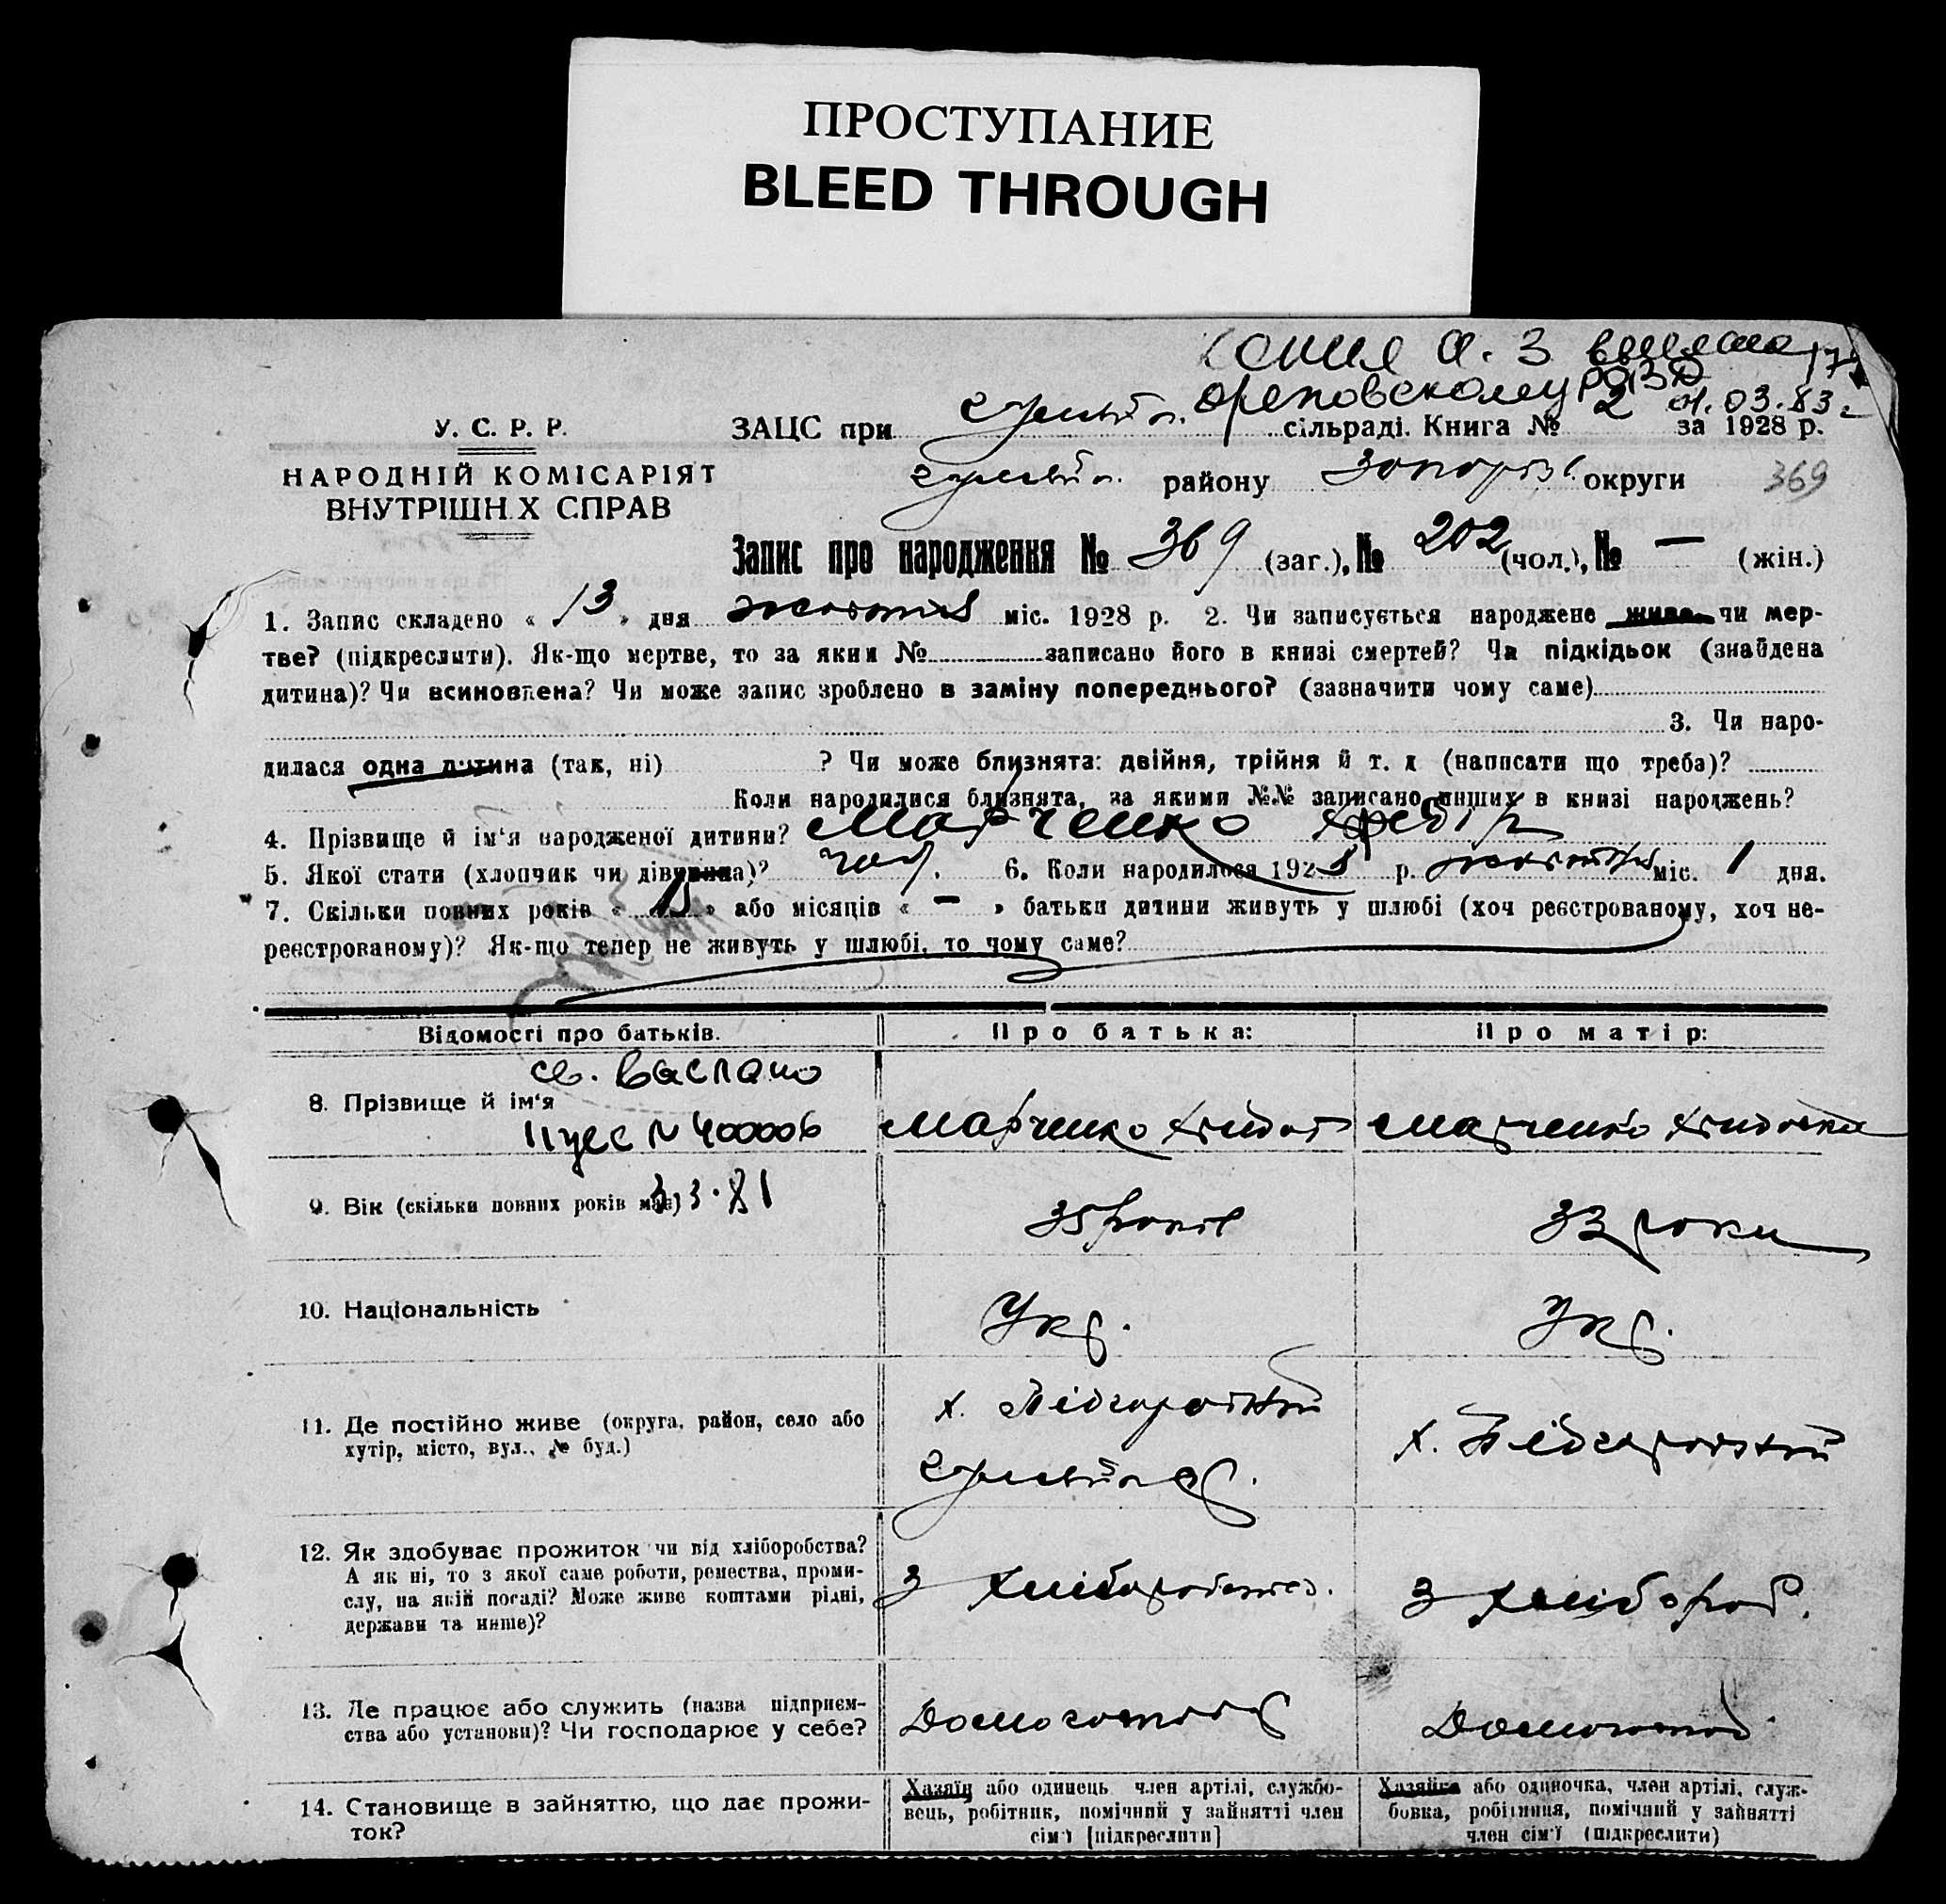 ПРОСТУПАНИЕ
BLEED THROUGH
копия а. з выслана
ореховскому
01.03.83 г
У. С. Р. Р.
НАРОДНІЙ КОМІСАРІЯТ
ВНУТРІШН.Х СПРАВ
ЗАЦС при сільраді. Книга № 2 за 1928 р.
району Запоріз. округи 369
Запис про народження № 369 (заг.), № 202 (чол.), № — (жін.)
1. Запис складено « 13 » дня жовтня міс. 1928 р. 2. Чи записується народжене живе чи мер-
тве? (підкреслити). Як-що мертве, то за яким № записано його в книзі смертей? Чи підкідьок (знайдена
дитина)? Чи всиновлена? Чи може запис зроблено в заміну попереднього? (зазначити чому саме)
3. Чи наро-
дилася одна дитина (так, ні) ? Чи може близнята: двійня, трійня й т. д (написати що треба)?
Коли народилися близнята, за якими №№ записано инших в книзі народжень?
4. Прізвище й ім'я народженої дитини? Марченко
5. Якої стати (хлопчик чи дівчина)? чол. 6. Коли народилося 1928 р. жовтня міс. 1 дня.
7. Скільки повних років « 15 » або місяців « – » батьки дитини живуть у шлюбі (хоч реєстрованому, хоч не-
реєстрованому)? Як-що тепер не живуть у шлюбі, то чому саме?
Відомості про батьків. Про батька: Про матір:
св. выслано
8. Прізвище й ім'я
II ЖС № 400006 Марченко Марченко
9. Вік (скільки повних років має) 3.3.81 35 років 33 роки
10. Національність Укр. Укр.
11. Де постійно живе (округа, район, село або
хутір, місто, вул., № буд.)
х. х.
12. Як здобуває прожиток чи від хліборобства?
А як ні, то з якої саме роботи, ремества, проми-
слу, на якій посаді? Може живе коштами рідні,
держави та инше)?
З хліборобства. З хлібороб.
13. Де працює або служить (назва підприєм-
ства або установи)? Чи господарює у себе?
Домогоспод Домогоспод.
14. Становище в зайняттю, що дає прожи-
ток?
Хазяїн або одинець член артілі, службо-
вець, робітник, помічний у зайнятті член
сім'ї [підкреслити]
Хазяйка або одиночка, член артілі, служ-
бовка, робітниця, помічний у зайнятті
член сім'ї (підкреслити)